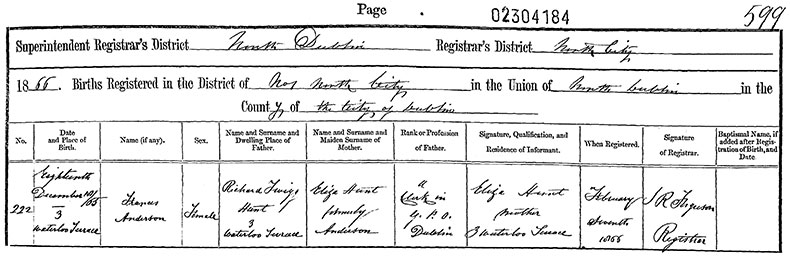 Page 02304184 599
Superintendent Registrar's District North Dublin Registrar's District North City
1866. Births Registered in the District of No 1 North City in the Union of North Dublin in the
County of the City of Dublin
No. Date and Place of Birth. Name (if any). Sex. Name and Surname and Dwelling Place of Father. Name and Surname and Maiden Surname of Mother. Rank or Profession of Father. Signature, Qualification, and Residence of Informant. When Registered. Signature of Registrar. Baptismal Name, if added after Registration of Birth, and Date
222
Eighteenth
December
3
Waterloo Terrace
Frances
Anderson
Female
Richard
Hunt
3
Waterloo Terrace
Eliza Hunt
formerly
Anderson
a
Clerk in
G. P. O.
Dublin
Eliza Hunt
Mother
3 Waterloo Terrace
February
Seventh
1866
J R Ferguson
Registrar